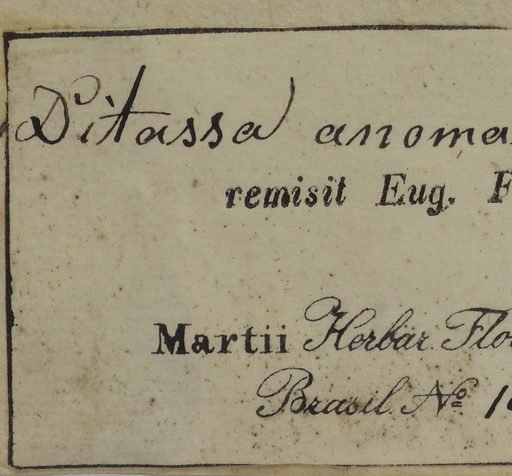 Ditassa anoma
remisit Eug. F
Martii Herbar. Flo
Brasil. Nº 1